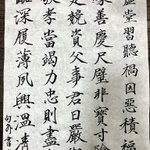 虛堂習聽禍因惡積福
緣善慶尺璧非寶寸陰
是競資父事君曰嚴與
敬孝當竭力忠則盡命
臨深履薄夙興溫凊